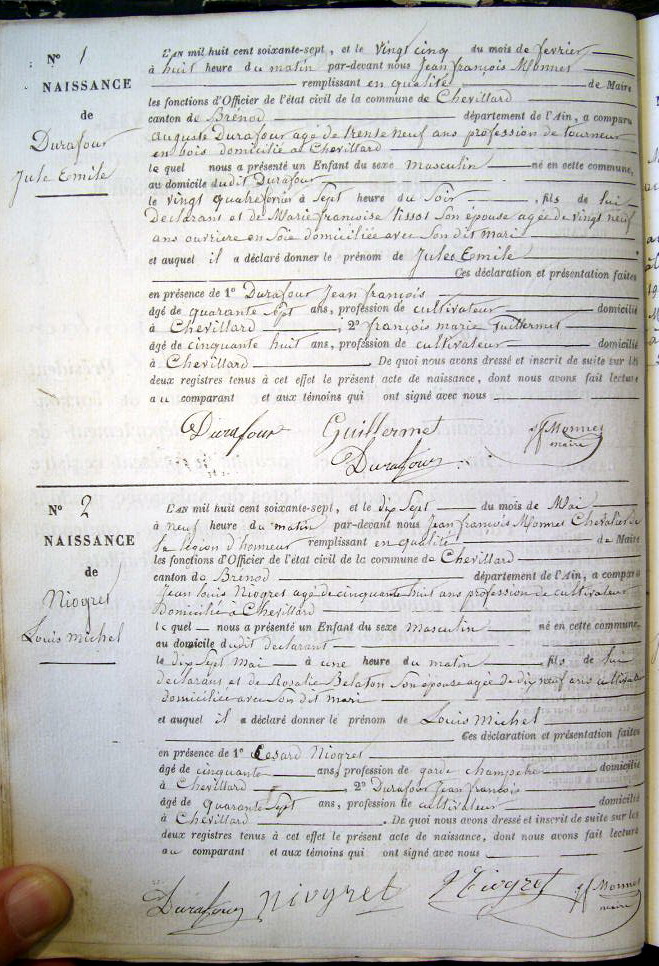 N° 1
NAISSANCE
de
Durafour
Jule Emile
L'AN mil huit cent soixante-sept, et le vingt cinq du mois de fevrier
à huit heure du matin par-devant nous Jean françois Monnet
remplissant en qualité de Maire
les fonctions d'Officier de l'état civil de la commune de Chevillard
canton de Brénod département de l'Ain, a comparu
auguste Durafour agé de trente neuf ans profession de tourneur
en bois domicilié a Chevillard
le quel nous a présenté un Enfant du sexe masculin né en cette commune,
au domicile dudit Durafour
le vingt quatre fevrier à Sept heure du Soir, fils de lui
declarans et de Marie françoise tissot Son épouse agée de vingt neuf
ans ouvriere en Soie domiciliée avec Son dit mari
et auquel il a déclaré donner le prénom de Jule Emile
Ces déclaration et présentation faites
en présence de 1° Durafour Jean françois
âgé de quarante Sept ans, profession de cultivateur domicilié
à Chevillard, 2° françois marie Guillermet
âgé de cinquante huit ans, profession de cultivateur domicilié
à Chevillard. De quoi nous avons dressé et inscrit de suite sur les
deux registres tenus à cet effet le présent acte de naissance, dont nous avons fait lecture
au comparant et aux témoins qui ont signé avec nous
Durafour Guillermet jf Monnet
maire
Durafour
N° 2
NAISSANCE
de
Niogret
Louis Michel
L'AN mil huit cent soixante-sept, et le dix Sept du mois de Mai
à neuf heure du matin par-devant nous Jean françois Monnet Chevalier de
la légion d'honneur remplissant en qualité de Maire
les fonctions d'Officier de l'état civil de la commune de Chevillard
canton de Brénod département de l'Ain, a comparu
Jean Louis Niogret agé de cinquante huit ans profession de cultivateur
Domicilié à Chevillard
le quel nous a présenté un Enfant du sexe Masculin né en cette commune,
au domicile dudit declarant
le dix Sept Mai à une heure du matin fils de lui
declarans et de Rosalie Belaton Son épouse agée de dix neuf ans cultivatr
domiciliée avec Son dit mari
et auquel il a déclaré donner le prénom de Louis Michel
Ces déclaration et présentation faites
en présence de 1° Cesard Niogret
âgé de cinquante ans, profession de garde champetre domicilié
à Chevillard, 2° Durafour Jean françois
âgé de quarante Sept ans, profession de cultivateur domicilié
à Chevillard. De quoi nous avons dressé et inscrit de suite sur les
deux registres tenus à cet effet le présent acte de naissance, dont nous avons fait lecture
au comparant et aux témoins qui ont signé avec nous
Durafour Niogret Niogret jf Monnet
maire